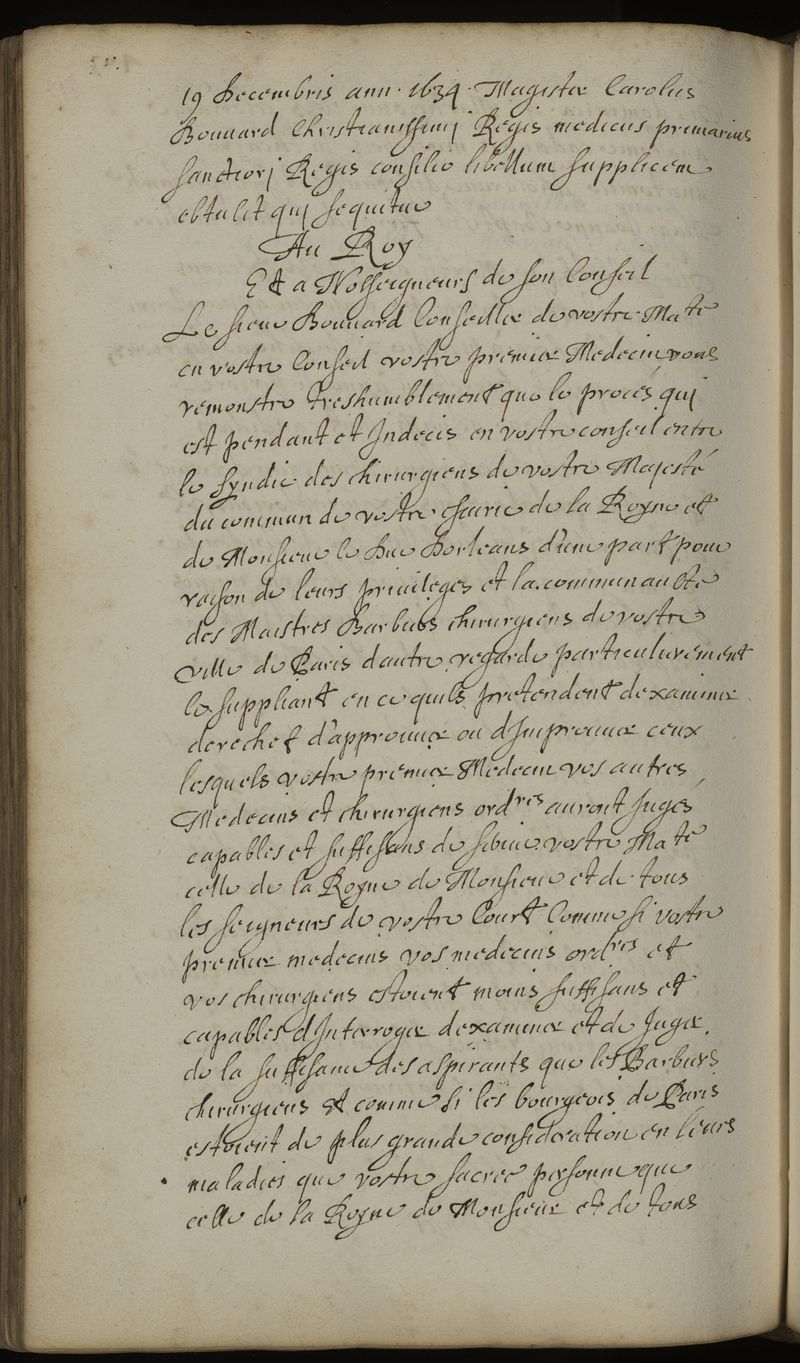 19 Decembris ann. 1634. Magister Carolus
Bouuard Christianissimj Regis medicus primarius
sanctiorj Regis consilio libellum supplicem
obtulit quj sequitur
Au Roy
Et a Nosseigneurs de son Conseil
Le sieur Bouuard Conseiller de vostre Ma.te
en vostre Conseil vostre premier Medecin vous
remonstre treshumblement que le procés quj
est pendant et Indecis en vostre conseil entre
le syndic des chirurgiens de vostre Majesté
du commun de vostre escurie de la Royne et
de Monsieur le Duc Dorleans d'une part pour
raison de leurs priuileges et la communaute
des Maistres Barbiers chirurgiens de vostre
ville de Paris dautre regarde particulierement
le suppliant en ce quils pretendent dexaminer
derechef d'approuuer ou d'Improuuer ceux
lesquels vostre premier Medecin vos autres
Medecins et chirurgiens ord.res auront Jugés
capables et suffisans de seruir vostre Ma.te
celle de la Royne de Monsieur et de tous
les seigneurs de vostre Court Comme si vostre
premier medecins vos medecins ord.res et
vos chirurgiens estoient moins suffisans et
capables d'Interroger dexaminer et de Juger
de la suffisance des aspirants que les Barbiers
chirurgiens et comme si les bourgeois de Paris
estoient de plus grande consideration en leurs
maladies que vostre sacree personne que
celle de la Royne de Monsieur et de tous